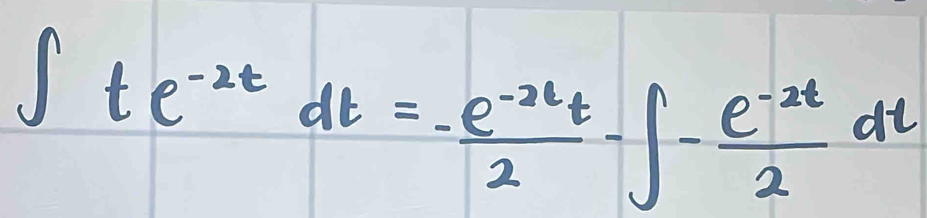 ∫ t e^{-2t} dt = - \frac{e^{-2t} t}{2} - ∫ - \frac{e^{-2t}}{2} dt